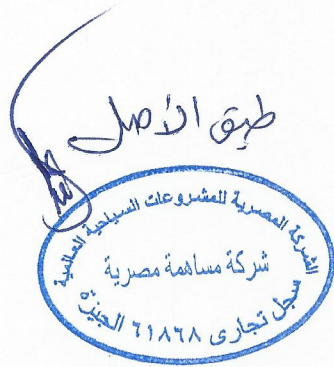 طبق الأصل
الشركة المصرية للمشروعات السياحية العالمية
شركة مساهمة مصرية
سجل تجارى ٦١٨٦٨ الجيزة